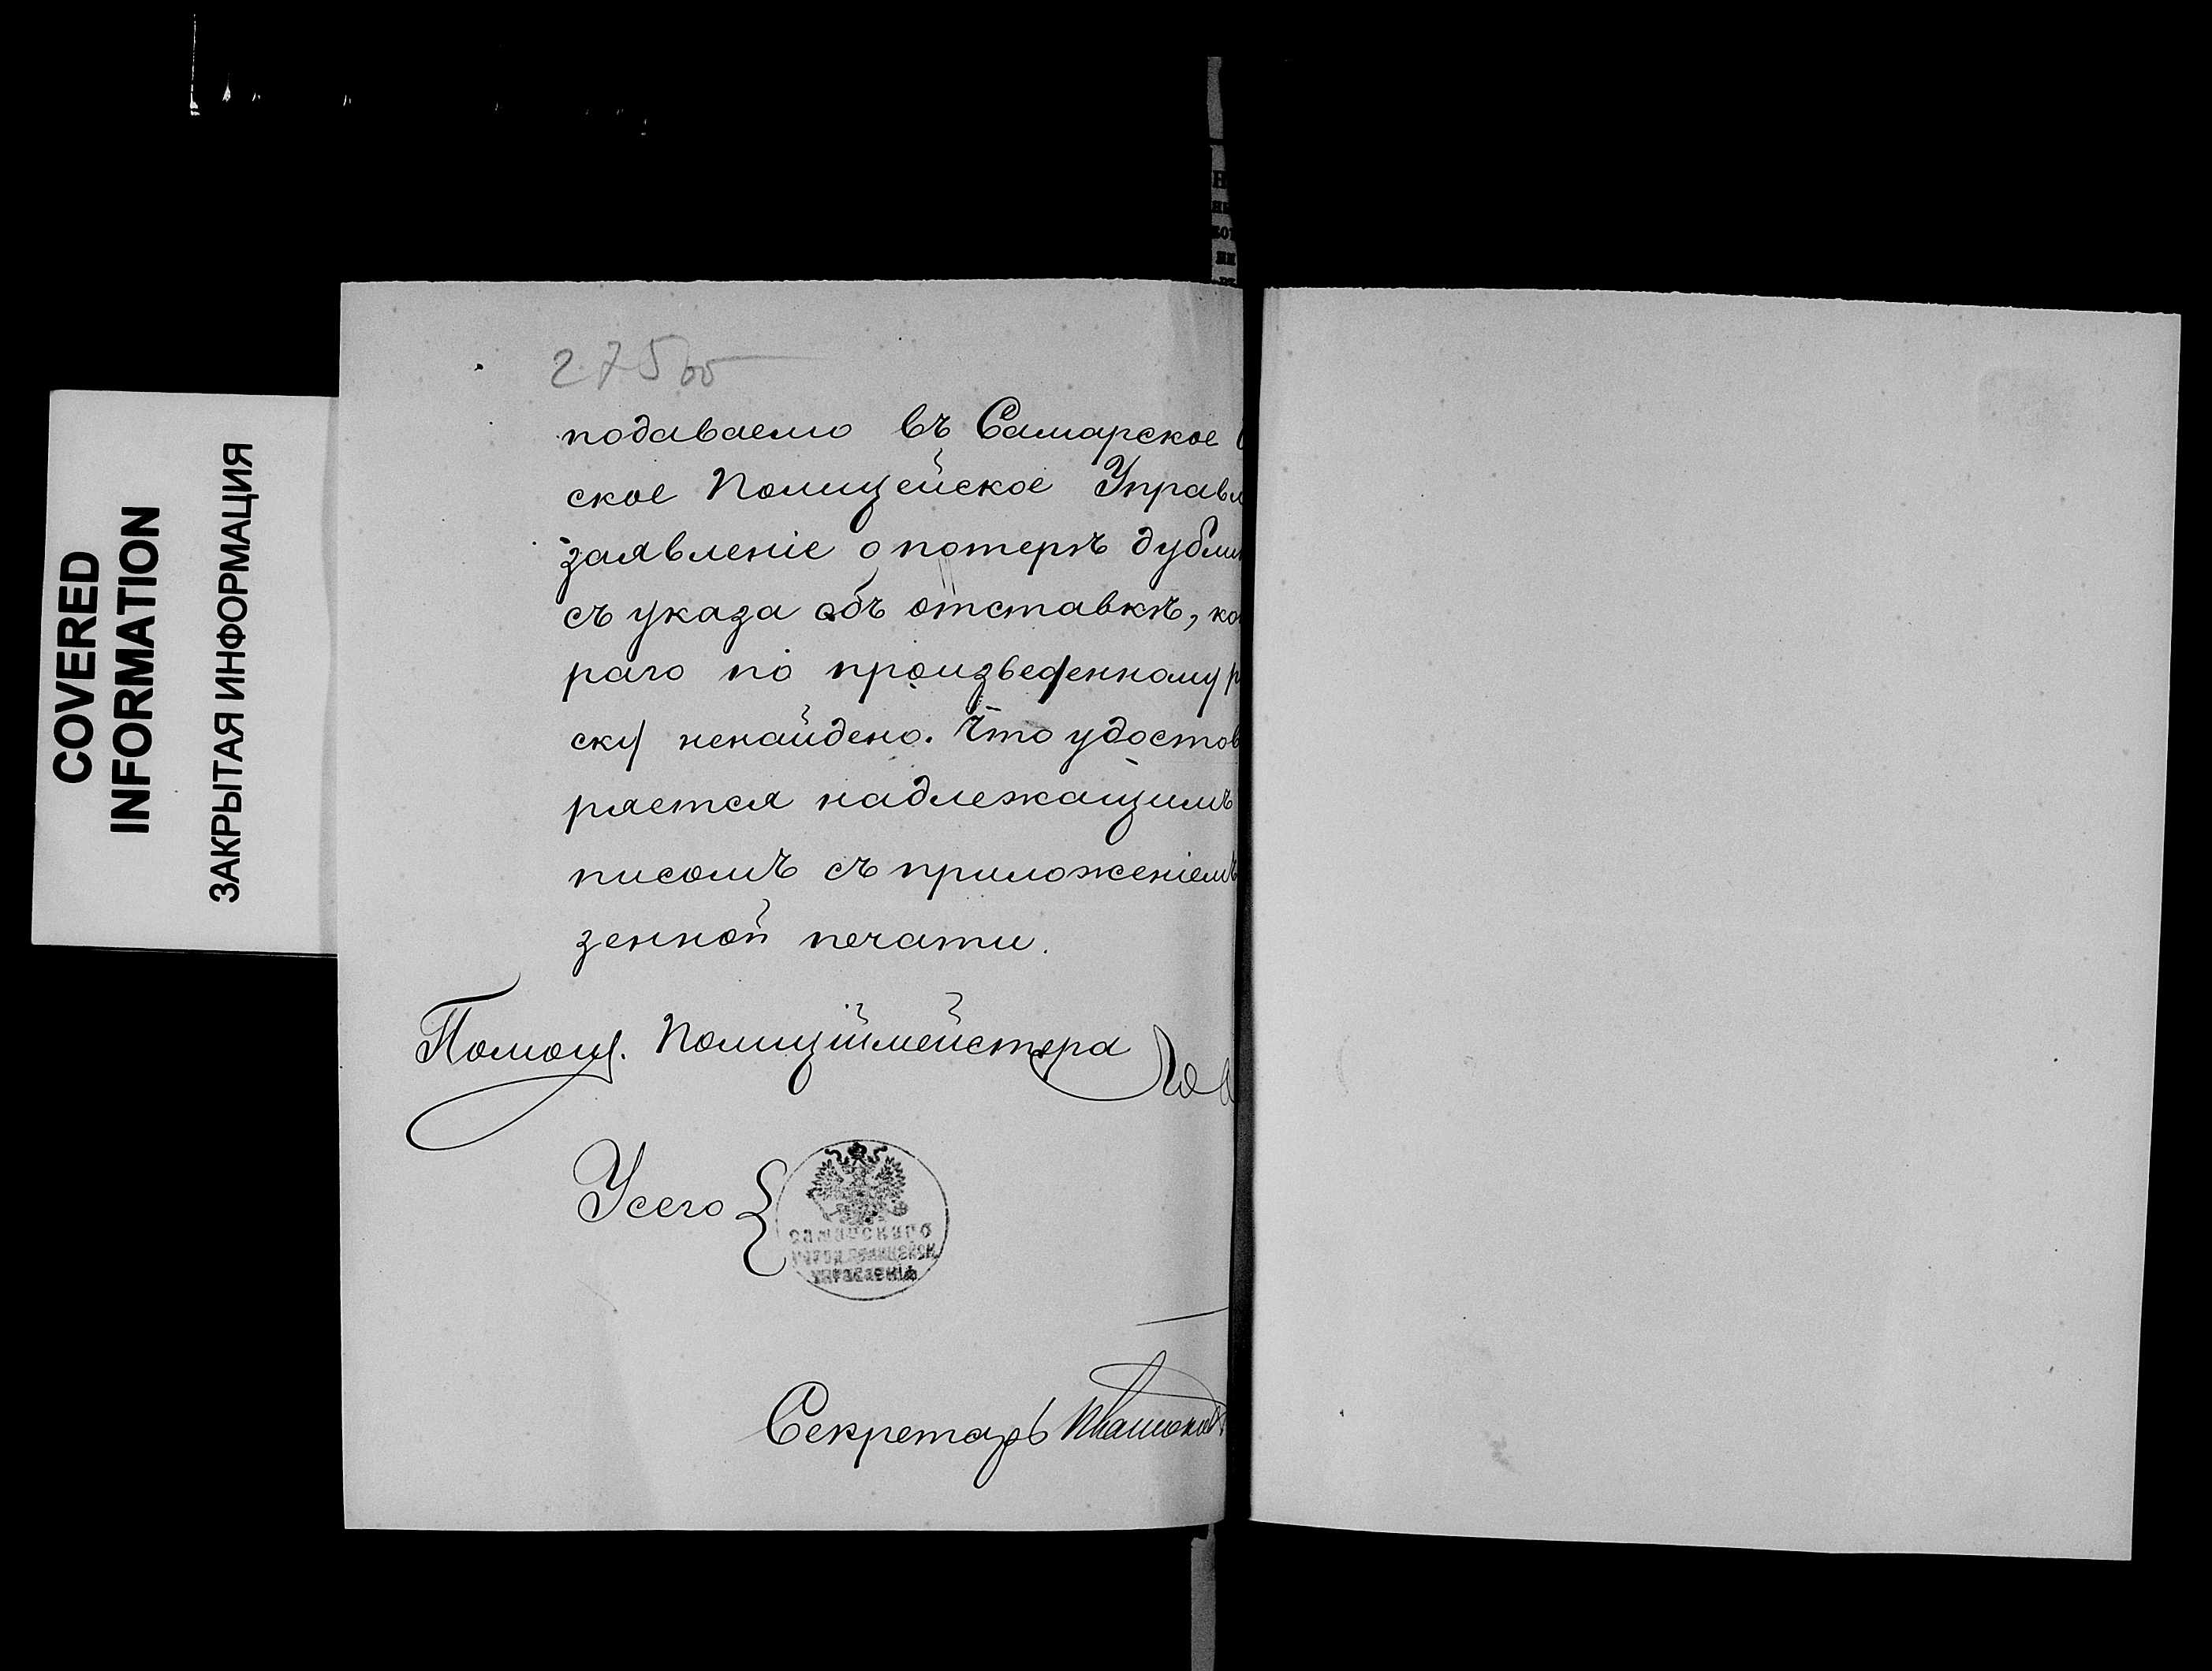 COVERED
INFORMATION
ЗАКРЫТАЯ ИНФОРМАЦИЯ
275 об
подаваемо въ Самарское
ское Полицейское Управл
заявленіе о потерѣ дубли
съ указа объ отставкѣ, ко
раго по произведенному р
ску ненайдено. Что удостов
ряется надлежащимъ
писомъ съ приложеніемъ
зенной печати.
Помощ. Полиціймейстера
У сего
самарскаго
город. полицейск.
управленія
Секретарь